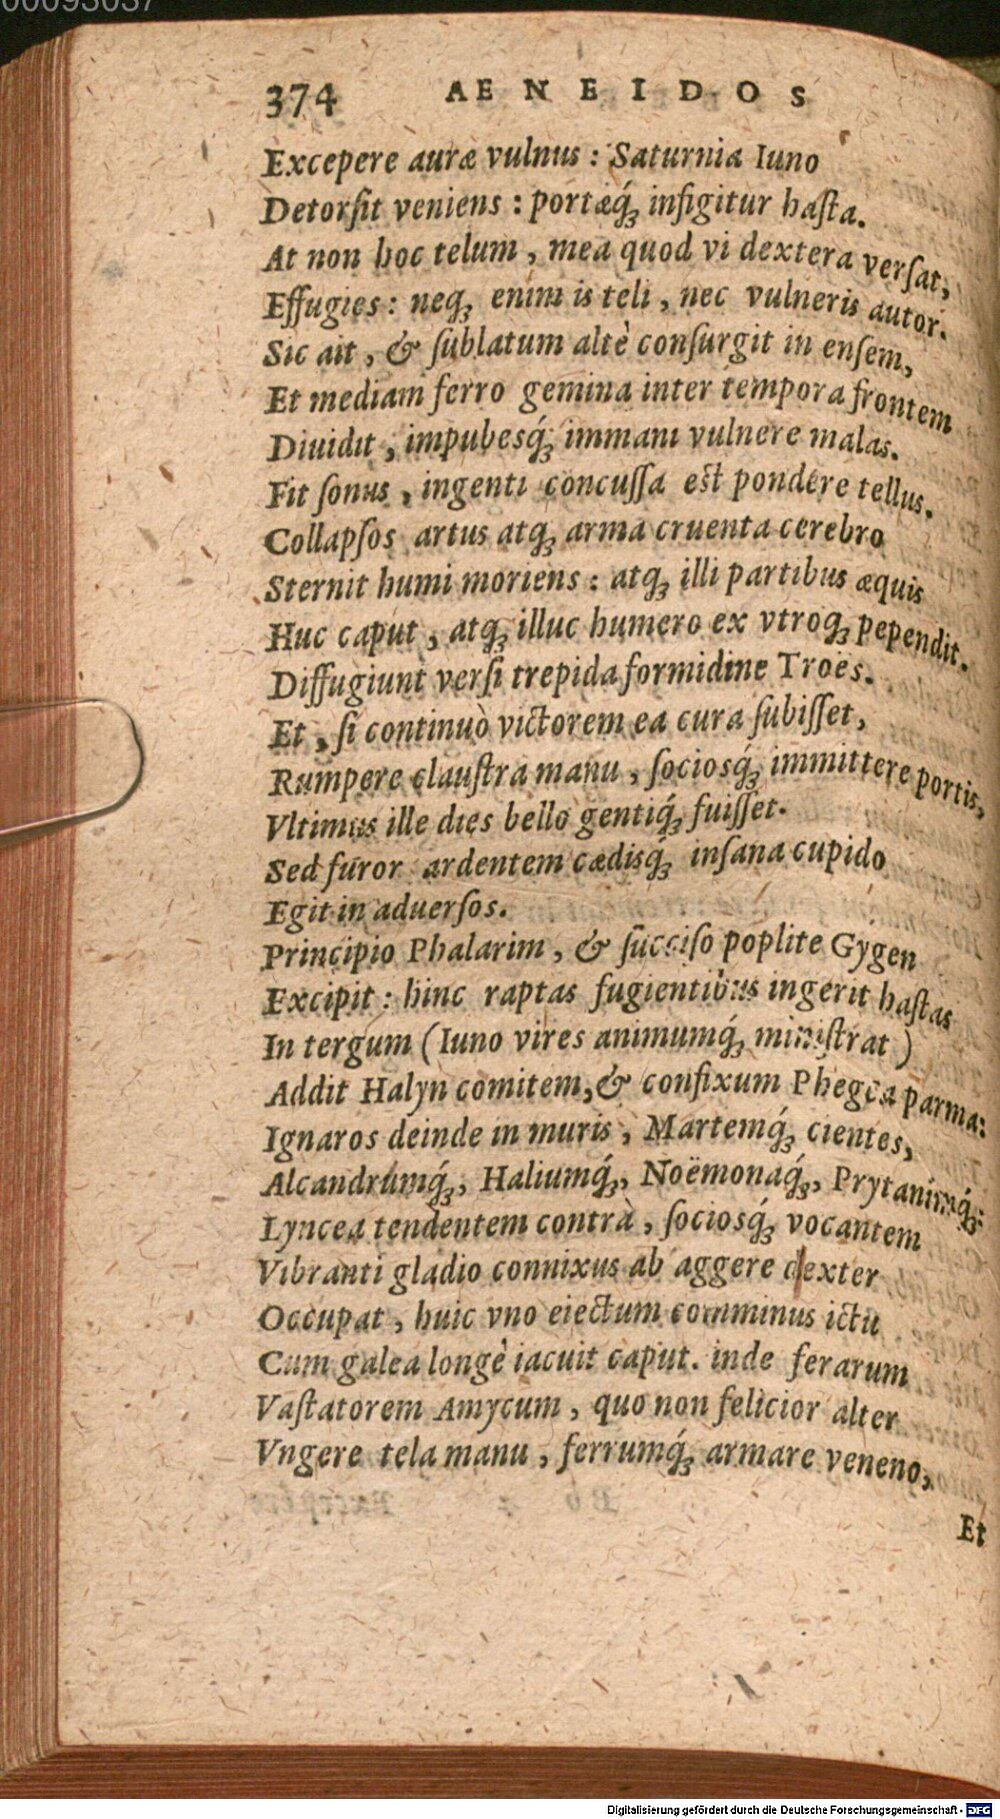 00093037
374 AENEIDOS
Excepere auræ vulnus : Saturnia Iuno
Detorſit veniens : portæq́ꝫ infigitur haſta.
At non hoc telum , mea quod vi dextera verſat,
Effugies : neqꝫ enim is teli , nec vulneris autor.
Sic ait , & ſublatum altè conſurgit in enſem,
Et mediam ferro gemina inter tempora frontem
Diuidit , impubesq́ꝫ immani vulnere malas.
Fit ſonus , ingenti concuſſa est pondere tellus.
Collapſos artus atqꝫ arma cruenta cerebro
Sternit humi moriens : atqꝫ illi partibus æquis
Huc caput , atqꝫ illuc humero ex vtroqꝫ pependit.
Diffugiunt verſi trepida formidine Troës.
Et , ſi continuò victorem ea cura ſubiſſet,
Rumpere clauſtra manu , ſociosq́ꝫ immittere portis,
Vltimus ille dies bello gentiq́ꝫ fuiſſet.
Sed furor ardentem cædisq́ꝫ inſana cupido
Egit in aduerſos.
Principio Phalarim , & ſucciſo poplite Gygen
Excipit : hinc raptas fugientibus ingerit haſtas
In tergum (Iuno vires animumq́ꝫ miniſtrat )
Addit Halyn comitem,& confixum Phegea parma:
Ignaros deinde in muris , Martemq́ꝫ cientes,
Alcandrumq́ꝫ, Haliumq́ꝫ, Noëmonaq́ꝫ, Prytanimq́ꝫ:
Lyncea tendentem contrà , ſociosq́ꝫ vocantem
Vibranti gladio connixus ab aggere dexter
Occupat , huic vno eiectum comminus ictu
Cum galea longè iacuit caput. inde ferarum
Vaſtatorem Amycum , quo non felicior alter
Vngere tela manu , ferrumq́ꝫ armare veneno,
Et
Digitalisierung gefördert durch die Deutsche Forschungsgemeinschaft - DFG